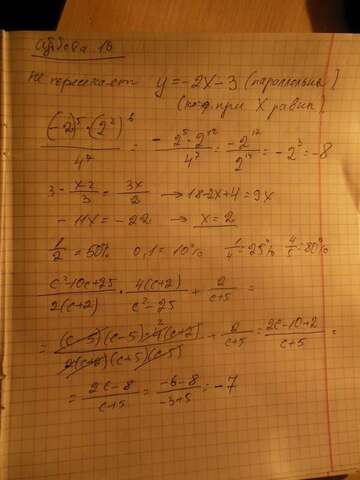 Не пересекает y = -2x - 3 (параллельна)
(коэф. при x равны)
((-2)^5 · (2^2)^6) / 4^7 = - (2^5 · 2^12) / 4^7 = -2^17 / 2^14 = -2^3 = -8
3 - (x-2)/3 = 3x/2 → 18 - 2x + 4 = 9x
- 11x = - 22 → x = 2
1/2 = 50% 0,1 = 10% 1/4 = 25% 4/5 = 80%
(c^2 - 10c + 25) / (2(c+2)) · (4(c+2)) / (c^2 - 25) + 2/(c+5) =
= ((c-5)(c-5) · 4(c+2)) / (2(c+2)(c+5)(c-5)) + 2/(c+5) = (2c - 10 + 2)/(c+5) =
= (2c - 8)/(c+5) = (-6 - 8)/(-3+5) = -7